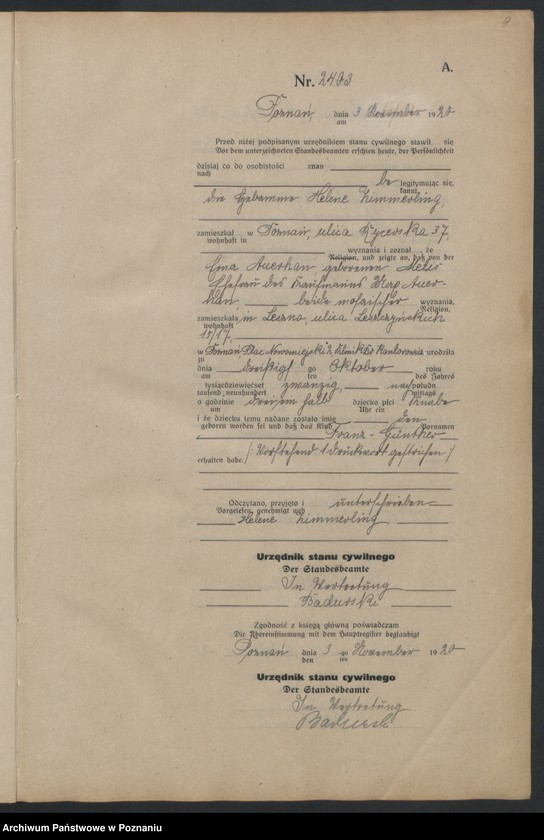 9
A.
Nr. 2403
Poznań, dnia 3 November 1920
am
Przed niżej podpisanym urzędnikiem stanu cywilnego stawił się
Vor dem unterzeichneten Standesbeamten erschien heute, der Persönlichkeit
dzisiaj co do osobistości znan
nach
be legitymując się,
kannt,
die Hebamme Helene Zimmerling,
zamieszkał w Poznań, ulica 37,
wohnhaft in
wyznania i zeznał że
Religion, und zeigte an, daß von der
Auerhan geborenen
Ehefrau des Kaufmanns Auer-
han, beide mosaischer wyznania,
Religion,
zamieszkała in Leszno, ulica Leszczyńskich
wohnhaft
15/17,
w Poznań Plac Nowomiejski Klinik urodziła
zu
dnia dreißig go Oktober roku
am ten des Jahres
tysiącdziewięćset zwanzig, nach połudn
tausend neunhundert mittags
o godzinie drei ein halb dziecko płci Knabe
um Uhr ein
i że dziecku temu nadane zostało imię den
geboren worden sei und daß das Kind Vornamen
Franz-Günther
erhalten habe. /: Vorstehend 1 Druckwort gestrichen /
Odczytano, przyjęto i unterschrieben
Vorgelesen, genehmigt und
Helene Zimmerling
Urzędnik stanu cywilnego
Der Standesbeamte
In Vertretung
Badurski
Zgodność z księgą główną poświadczam
Die Übereinstimmung mit dem Hauptregister beglaubigt
Poznań dnia 3 go November 1920
den ten
Urzędnik stanu cywilnego
Der Standesbeamte
In Vertretung
Badurski
Archiwum Państwowe w Poznaniu